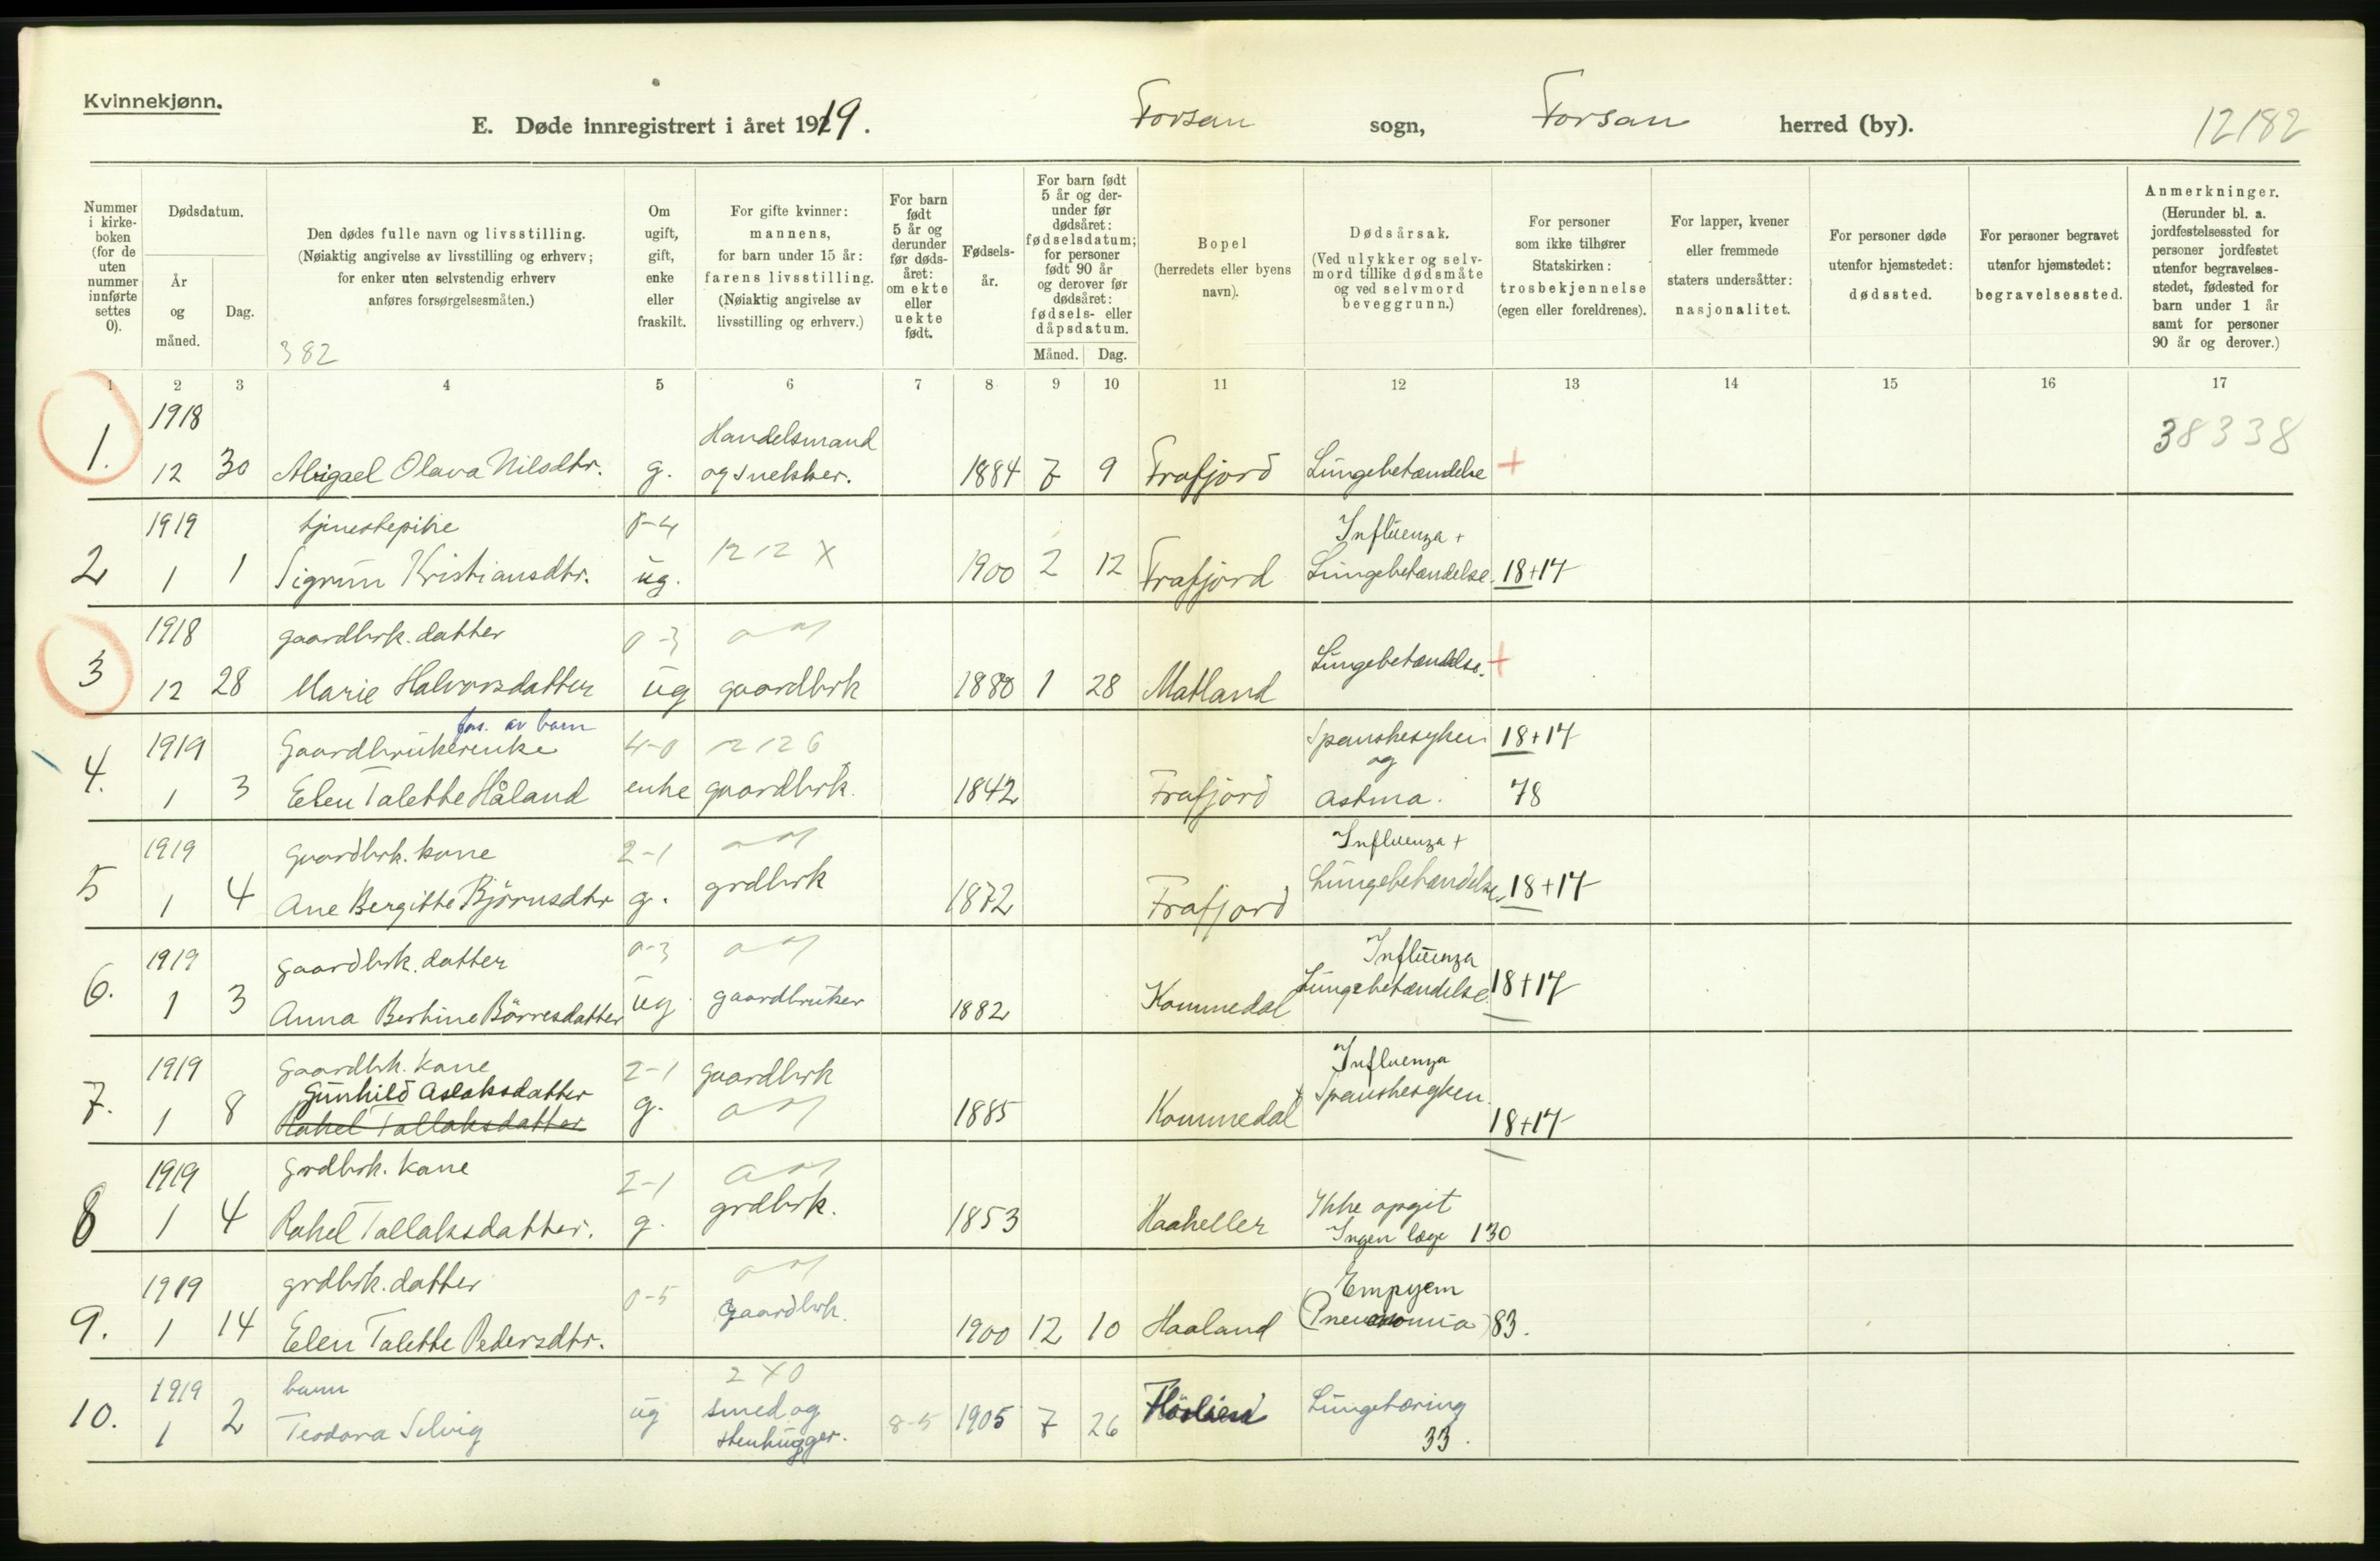 Kvinnekjønn.
E. Døde innregistrert i året 1919. Forsan sogn, Forsan herred (by). 12182
Nummer i kirkeboken (for de uten nummer innførte settes 0).
Dødsdatum.
År og måned.
Dag.
Den dødes fulle navn og livsstilling.
(Nøiaktig angivelse av livsstilling og erhverv;
for enker uten selvstendig erhverv
anføres forsørgelsesmåten.)
382
Om ugift, gift, enke eller fraskilt.
For gifte kvinner: mannens, for barn under 15 år: farens livsstilling. (Nøiaktig angivelse av livsstilling og erhverv.)
For barn født 5 år og derunder før dødsåret: om ekte eller uekte født.
Fødselsår.
For barn født 5 år og derunder før dødsåret: fødselsdatum; for personer født 90 år og derover før dødsåret: fødsels- eller dåpsdatum.
Måned. Dag.
Bopel (herredets eller byens navn).
Dødsårsak. (Ved ulykker og selvmord tillike dødsmåte og ved selvmord beveggrunn.)
For personer som ikke tilhører Statskirken: trosbekjennelse (egen eller foreldrenes).
For lapper, kvener eller fremmede staters undersåtter: nasjonalitet.
For personer døde utenfor hjemstedet: dødssted.
For personer begravet utenfor hjemstedet: begravelsessted.
Anmerkninger. (Herunder bl. a. jordfestelsessted for personer jordfestet utenfor begravelsesstedet, fødested for barn under 1 år samt for personer 90 år og derover.)
1 2 3 4 5 6 7 8 9 10 11 12 13 14 15 16 17
1918 Handelsmand 38338
1. 12 30 Abigael Olava Nilsdtr. g. og snekker. 1884 7 9 Frafjord Lungebetændelse +
1919 tjenestepike 0-4 12 12 X Influenza +
2 1 1 Sigrun Kristiansdtr. ug. 1900 2 12 Frafjord Lungebetændelse. 18+17
1918 gaardbrk. datter 0-3
3 12 28 Marie Halvorsdatter ug gaardbrk 1880 1 28 Matland Lungebetændelse. +
fors. av barn
1919 Gaardbrukerenke 4-0 12 12 6 Spanskesyken 18+17
og
4. 1 3 Elen Talette Håland enke gaardbrk. 1842 Frafjord Astma. 78
1919 Gaardbrk. kone 2-1 Influenza +
5 1 4 Ane Bergitte Björnsdtr g. grdbrk 1872 Frafjord Lungebetændelse. 18+17
1919 gaardbrk. datter 0-3 Influenza
6. 1 3 Anna Bertine Börresdatter ug. gaardbruker 1882 Kommedal Lungebetændelse. 18+17
1919 gaardbrk. kone 2-1 gaardbrk Influenza
Gunhild Aslaksdatter + Spanskesyken.
7. 1 8 Rakel Tallaksdatter g. 1885 Kommedal 18+17
1919 Grdbrk. kone 2-1 Ikke opgit
8 1 4 Rakel Tallaksdatter. g. grdbrk. 1853 Haaheller Ingen læge 130
1919 grdbrk. datter 0-5 Empyem
9. 1 14 Elen Talette Pedersdtr. Gaardbrk. 1900 12 10 Haaland (Pneumonia) 83.
1919 barn 2 X 0
10. 1 2 Teodora Selvig ug smed og stenhugger. 8-5 1905 7 26 Lungetæring 33.